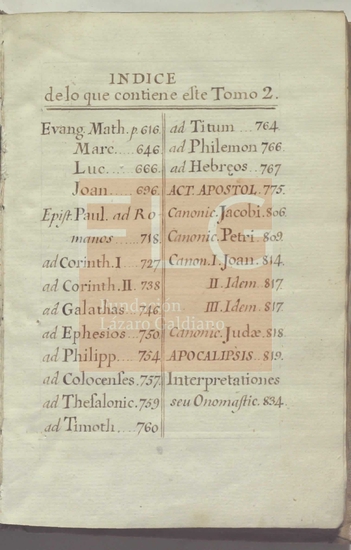 INDICE
de lo que contiene este Tomo 2.
Evang. Math. p. 616.
Marc..... 646
Luc..... 666.
Joan..... 696.
Epist. Paul. ad Ro
manos ...... 718.
ad Corinth. I ... 727
ad Corinth. II. 738
ad Galathas .. 746
ad Ephesios ... 750
ad Philipp..... 754
ad Colocenses. 757.
ad Thesalonic. 759
ad Timoth.... 760
ad Titum .... 764.
ad Philemon 766.
ad Hebrços .. 767
ACT. APOSTOL. 775.
Canonic. Jacobi. 806.
Canonic. Petri.. 809.
Canon. I. Joan.. 814.
II. Idem.. 817.
III. Idem.. 817
Canonic. Judæ. 818.
APOCALIPSIS.. 819.
Interpretationes
seu Onomastic. 834.
FLG
Fundación
Lázaro Galdiano